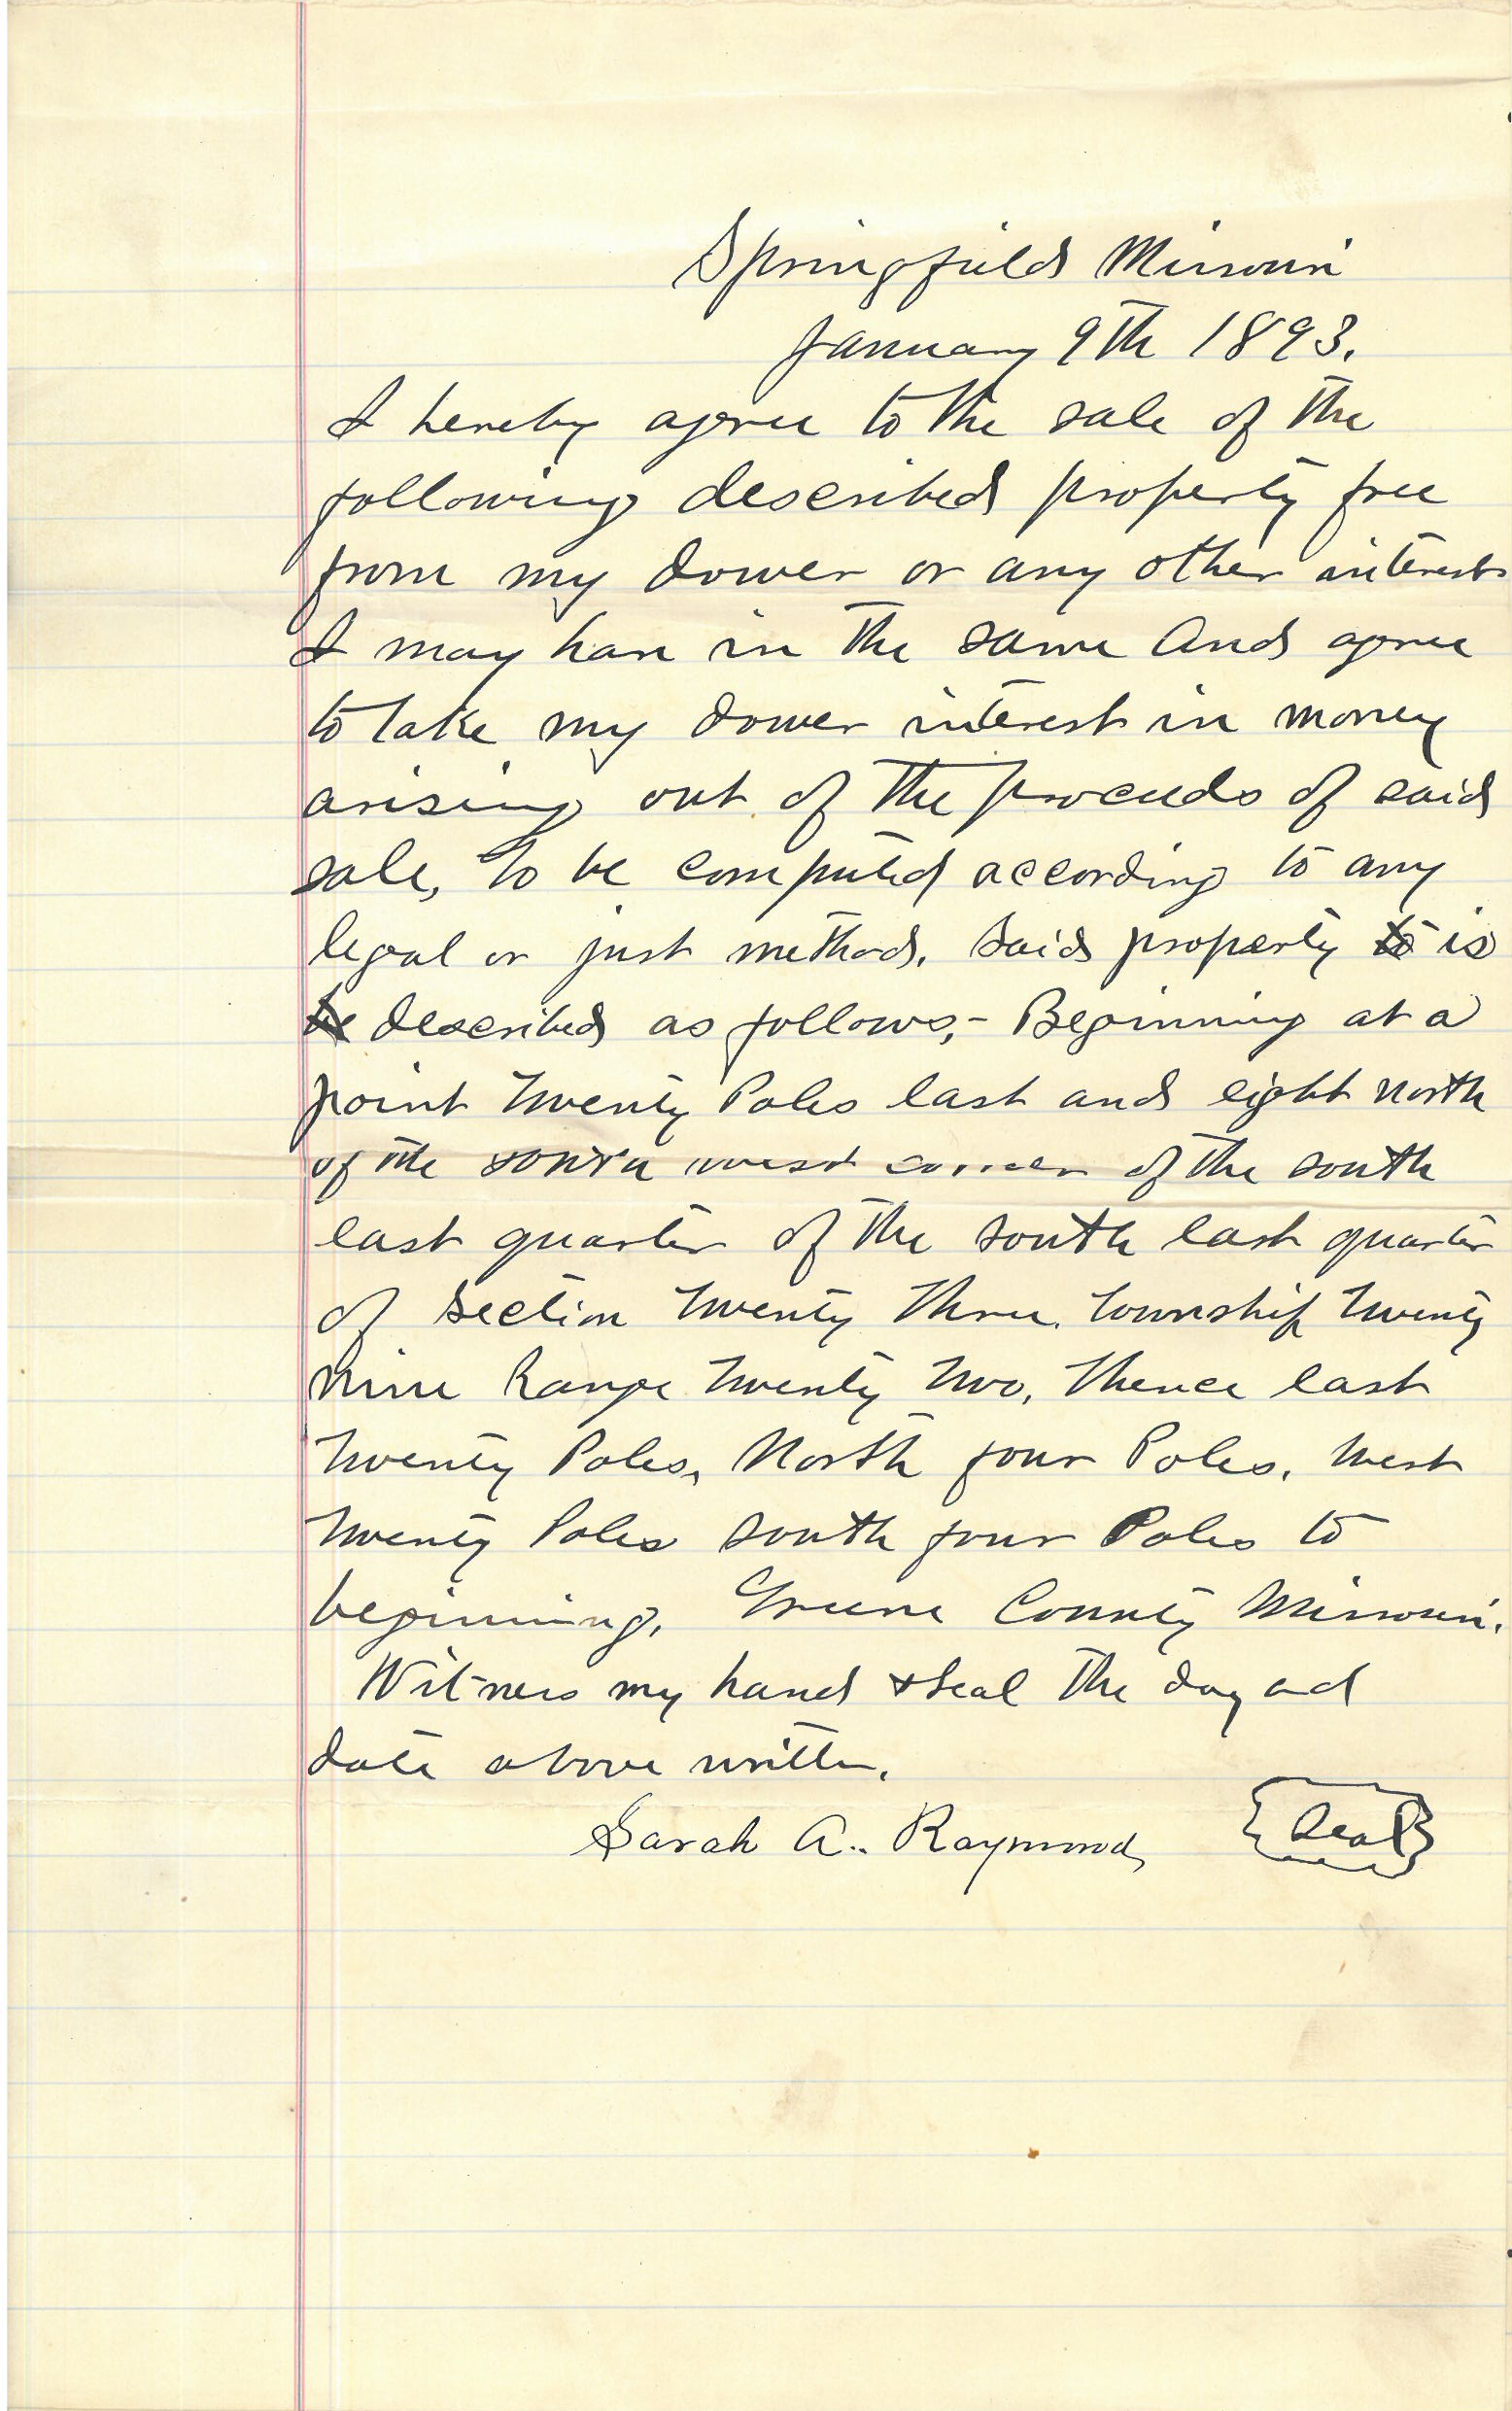 Springfield Missouri
January 9th 1893.
I hereby agree to the sale of the
following described property free
from my dower or any other interest
I may have in the same and agree
to take my dower interest in money
arising out of the proceeds of said
sale, to be computed according to any
legal or just method. Said property to is
be described as follows,- Beginning at a
point twenty Poles east and eight north
of the south west corner of the south
east quarter of the south east quarter
of Section twenty three. township twenty
nine Range twenty two, thence east
twenty Poles, North four Poles, west
twenty Poles south four Poles to
beginning, Greene County Missouri.
Witness my hand & Seal the day and
date above written.
Sarah A.. Raymond, Seal